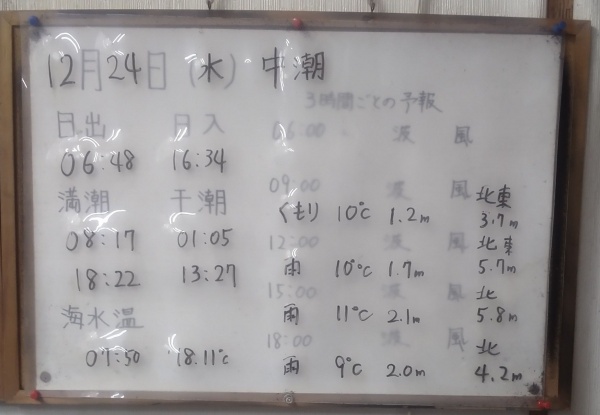 12月24日(水) 中潮
3時間ごとの予報
日出 日入 06:00 波 風
06:48 16:34
09:00 波 風
満潮 干潮 くもり 10℃ 1.2m 北東 3.7m
08:17 01:05 12:00 波 風
18:22 13:27 雨 10℃ 1.7m 北東 5.7m
15:00 波 風
海水温 雨 11℃ 2.1m 北 5.8m
18:00 波 風
07:50 18.11℃ 雨 9℃ 2.0m 北 4.2m